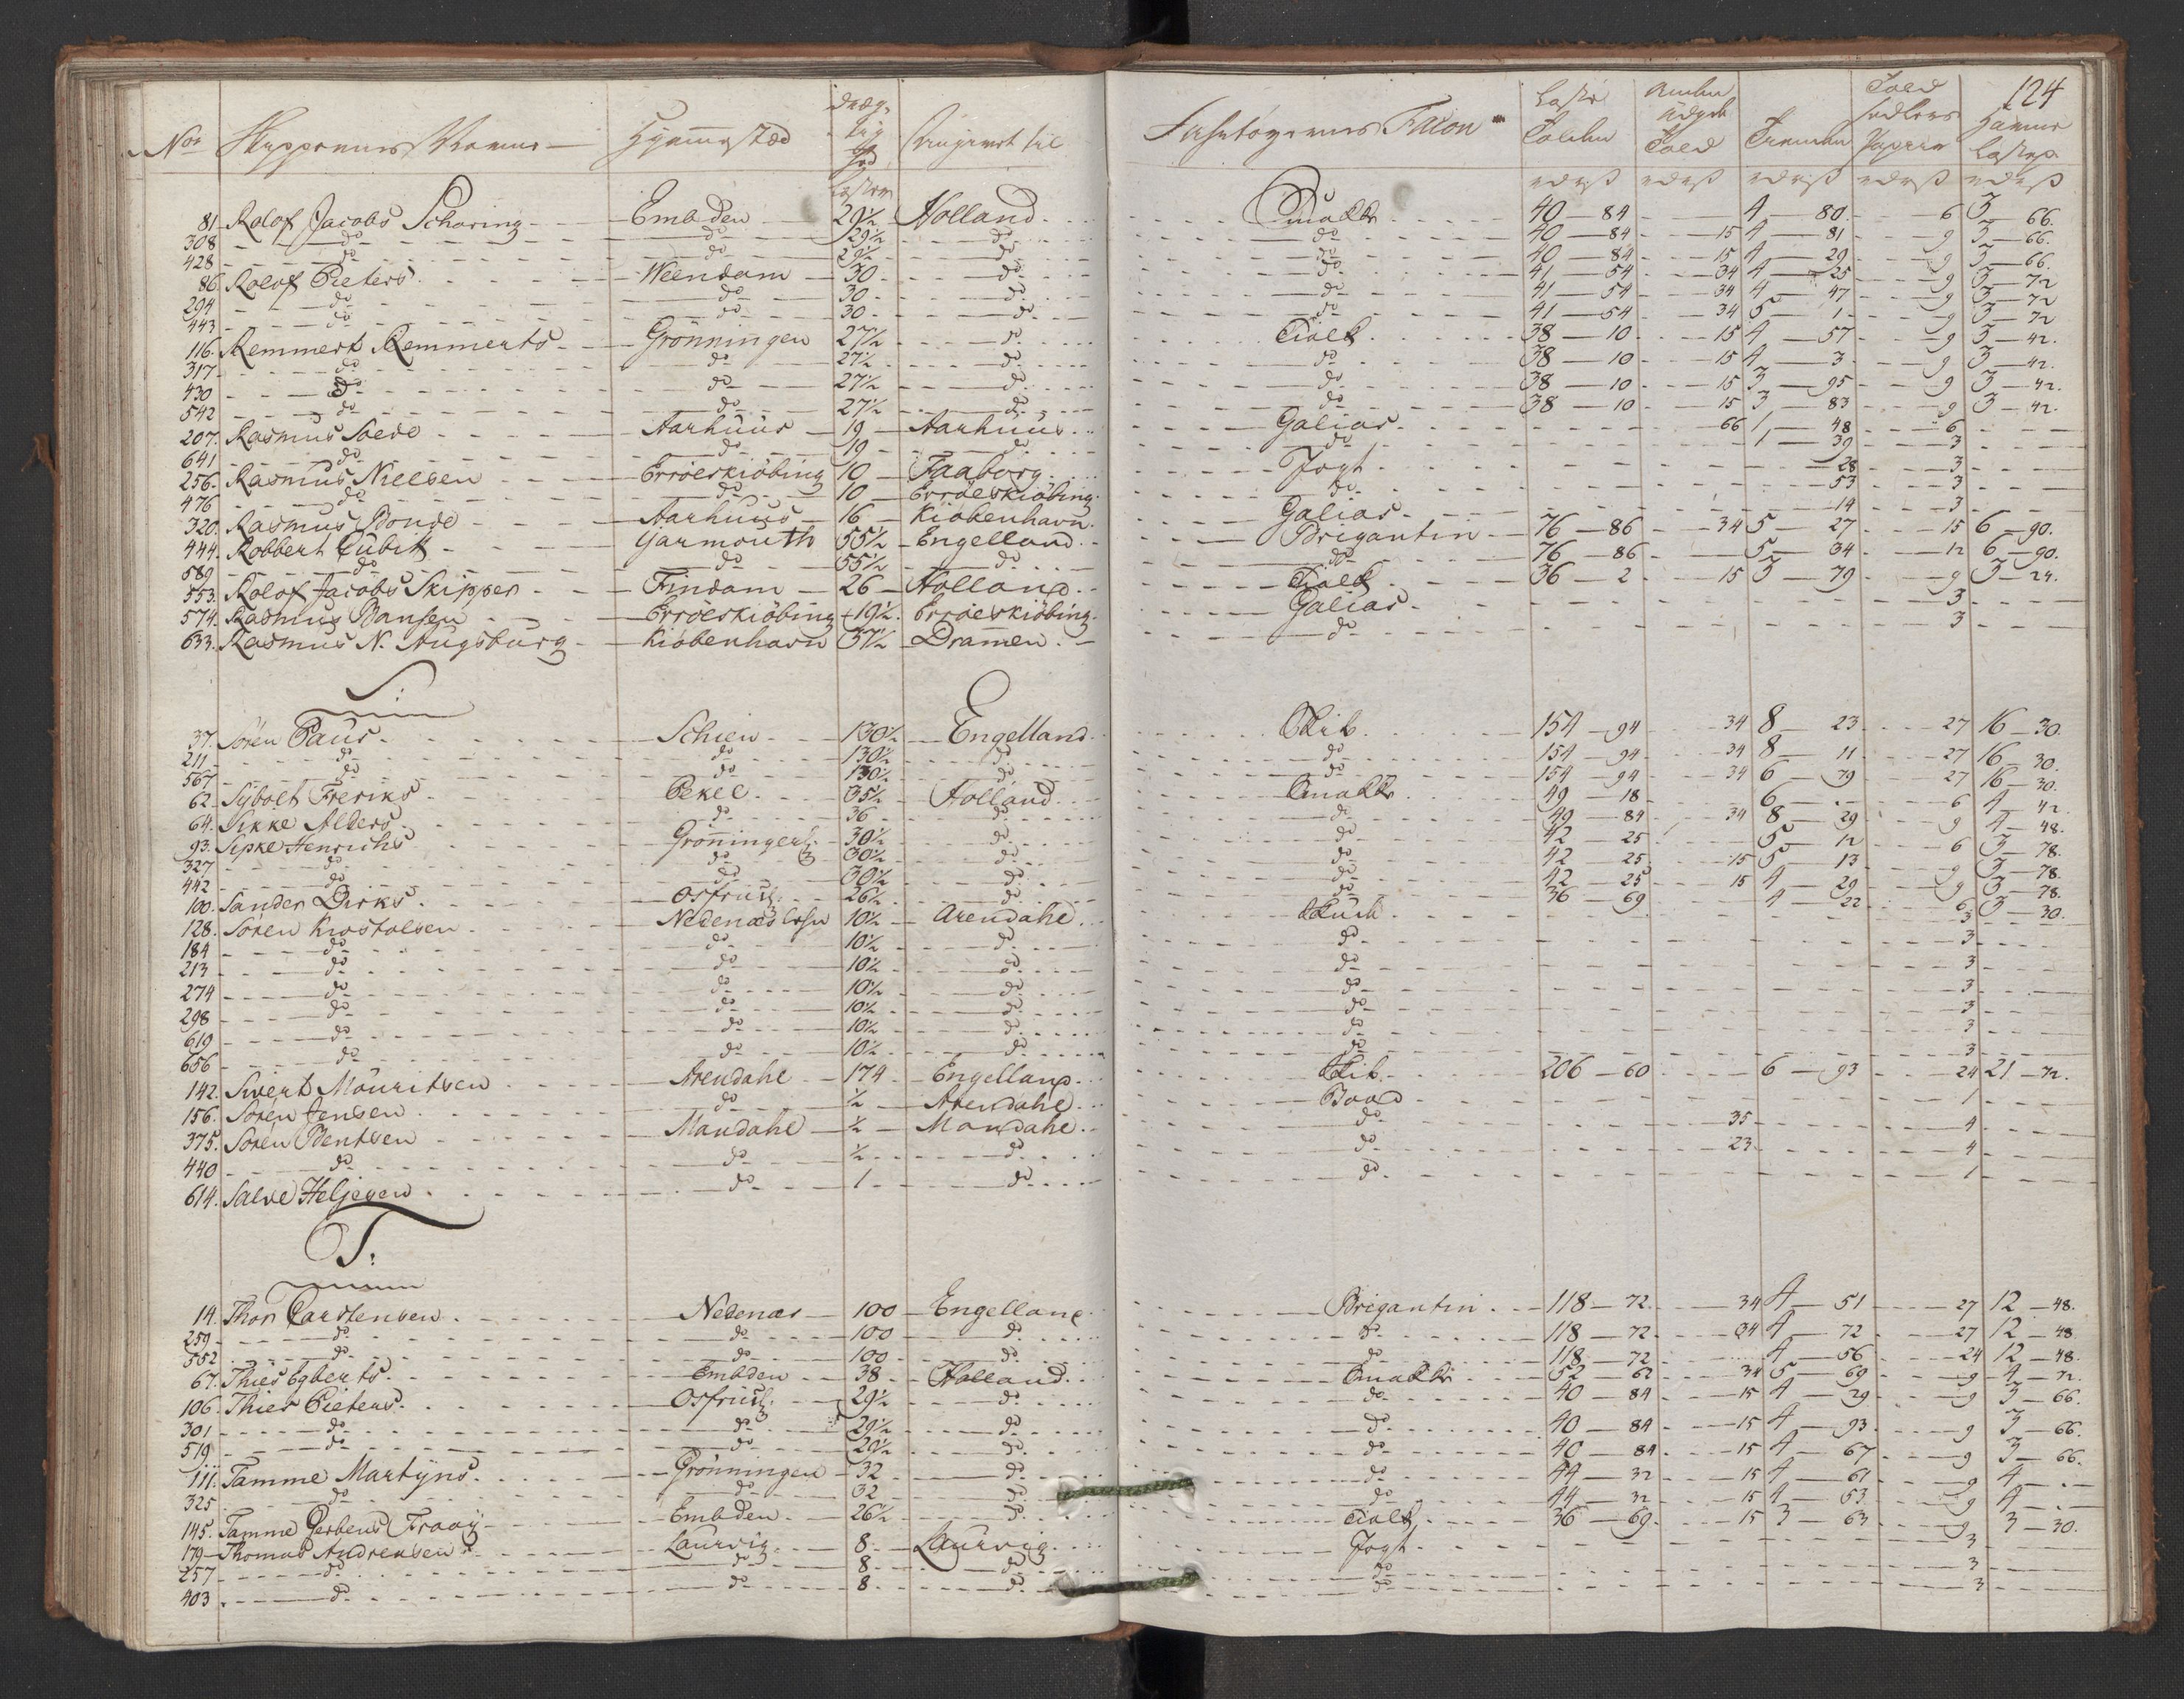 124
No Skippernes Navne Hjemmested Drægtighed Læster Angivet til Fartøyernes Facon Læste Tolden Told Told Papiir
81 Rolof Jacobs Scharing Embden 29½ Holland Smakke 40 84 4 80 6 3 66.
308 do do 29½ do do 40 84 15 4 81 9 3 66.
428 do do 29½ do do 40 84 15 4 29 9 3 66.
86 Rolof Pieters Weendam 30 do do 41 54 34 4 25 9 3 72
294 do do 30 do do 41 54 34 4 47 9 3 72
443 do do 30 do do 41 54 34 5 1 9 3 72
116. Remmert Remmerts Grönningen 27½ do Tialk 38 10 15 4 57 9 3 42.
317 do do 27½ do do 38 10 15 4 3 9 3 42.
430 do do 27½ do do 38 10 15 3 95 9 3 42.
542 do do 27½ do do 38 10 15 3 83 9 3 42.
207. Rasmus Soede Aarhuus 19 Aarhuus Galias 66 1 48 6
641 do do 19 do do 1 39 3
256. Rasmus Nielsen Erröeskiöbing 10 Faaborg Jagt 28 3
476 do do 10 Erröeskiöbing do 53 3
320. Rasmus Bonde Aarhuus 16 Kiöbenhavn Galias 14 3
444. Robbert Cubitt Yarmouth 55½ Engelland Brigantin 76 86 34 5 27 15 6 90.
589 do do 55½ do do 76 86 5 34 12 6 90.
553. Rolof Jacobs Skipper Findam 26 Holland Tialk 36 2 15 3 79 9 3 24.
574. Rasmus Bansen Erröeskiöbing 19½ Erröeskiöbing Galias 3
633. Rasmus N. Augsburg Kiöbenhavn 37½ Dramen do 3
S:
37. Sören Paus Schien 130½ Engelland Skib 154 94 34 8 23 27 16 30.
211 do do 130½ do do 154 94 34 8 11 27 16 30.
567 do do 130½ do do 154 94 34 6 79 27 16 30.
62. Sÿbolt Freriks Pekel 35½ Holland Smakke 49 18 6 6 4 42
64. Sikke Alders do 36 do do 49 84 34 8 29 9 4 48.
93. Sipke Henrichs Grönningen 30½ do do 42 25 5 12 6 3 78.
327 do do 30½ do do 42 25 15 5 13 9 3 78.
442 do do 30½ do do 42 25 15 4 29 9 3 78.
100. Sander Dirks Osfriisl. 26½ do do 36 69 4 22 6 3 30.
128. Sören Knostolsen Nedenæs Lehn 10½ Arendahl Skude 3
184 do do 10½ do do 3
213 do do 10½ do do 3
274 do do 10½ do do 3
298 do do 10½ do do 3
619 do do 10½ do do 3
656 do do 10½ do do 3
142. Sivert Mouritsen Arendahl 174 Engelland Skib 206 60 6 93 24 21 72.
156. Sören Jensen do ½ Arendahl Baad 1
375. Sören Bentsen Mandahl ½ Mandahl do 35 4
440 do do ½ do do 23 4
614. Salve Heljesen do 1 do do 1
T:
14. Thor Carstensen Nedenæs 100 Engelland Brigantin 118 72. 34 4 51 27 12 48.
259 do do 100 do do 118 72. 34 4 72 27 12 48
552 do do 100 do do 118 72 4 56 24 12 48.
67. Thies Egberts Embden 38 Holland Smakke 52 62 34 5 69 9 4 72.
106. Thies Pieters Osfriisl. 29½ do do 40 84 15 4 29 9 3 66.
301 do do 29½ do do 40 84 15 4 93 9 3 66.
519 do do 29½ do do 40 84 15 4 67 9 3 66.
111. Tamme Martÿns Grönningen 32 do do 44 32 15 4 61 9 4
325 do do 32 do do 44 32 15 4 53 9 4
145. Tamme Gerbens Fraaÿ Embden 26½ do Tialk 36 69. 15 3 63 9 3 30.
179 Thomas Andreasen Laurvig 8 Laurvig Jagt 3
257 do do 8 do do 3
403 do do 8 do do 3